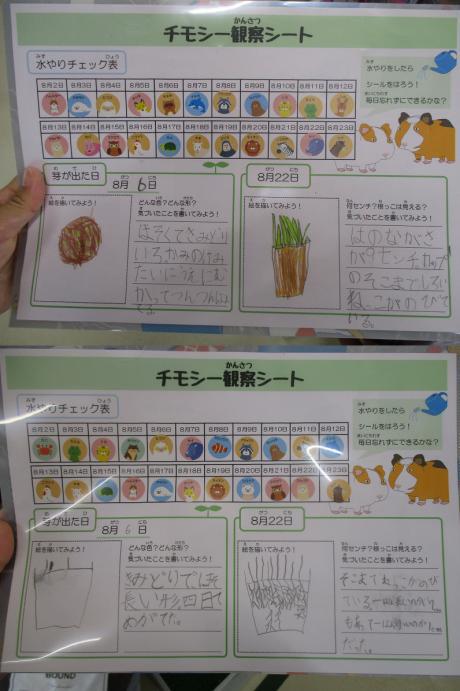 チモシー観察シート
かんさつ
水やりチェック表
みず
ひょう
水やりをしたら
シールをはろう！
毎日忘れずにできるかな？
8月2日 8月3日 8月4日 8月5日 8月6日 8月7日 8月8日 8月9日 8月10日 8月11日 8月12日
8月13日 8月14日 8月15日 8月16日 8月17日 8月18日 8月19日 8月20日 8月21日 8月22日 8月23日
芽が出た日
8月6日
絵を描いてみよう！
どんな色？どんな形？
気づいたことを書いてみよう！
ほそくてきみどり
いろかみのけみ
たいにうえにむ
かってつんつん
8月22日
絵を描いてみよう！
何センチ？根っこは見える？
気づいたことを書いてみよう！
はのながさ
が9センチカップ
のそこまでしろい
ねっこがのびて
いる。
チモシー観察シート
かんさつ
水やりチェック表
みず
ひょう
水やりをしたら
シールをはろう！
毎日忘れずにできるかな？
8月2日 8月3日 8月4日 8月5日 8月6日 8月7日 8月8日 8月9日 8月10日 8月11日 8月12日
8月13日 8月14日 8月15日 8月16日 8月17日 8月18日 8月19日 8月20日 8月21日 8月22日 8月23日
芽が出た日
8月6日
絵を描いてみよう！
どんな色？どんな形？
気づいたことを書いてみよう！
きみどりでほそ
長い形四日で
めがでた。
8月22日
絵を描いてみよう！
何センチ？根っこは見える？
気づいたことを書いてみよう！
そこまでねっこがのび
ている
だった。
BOUND